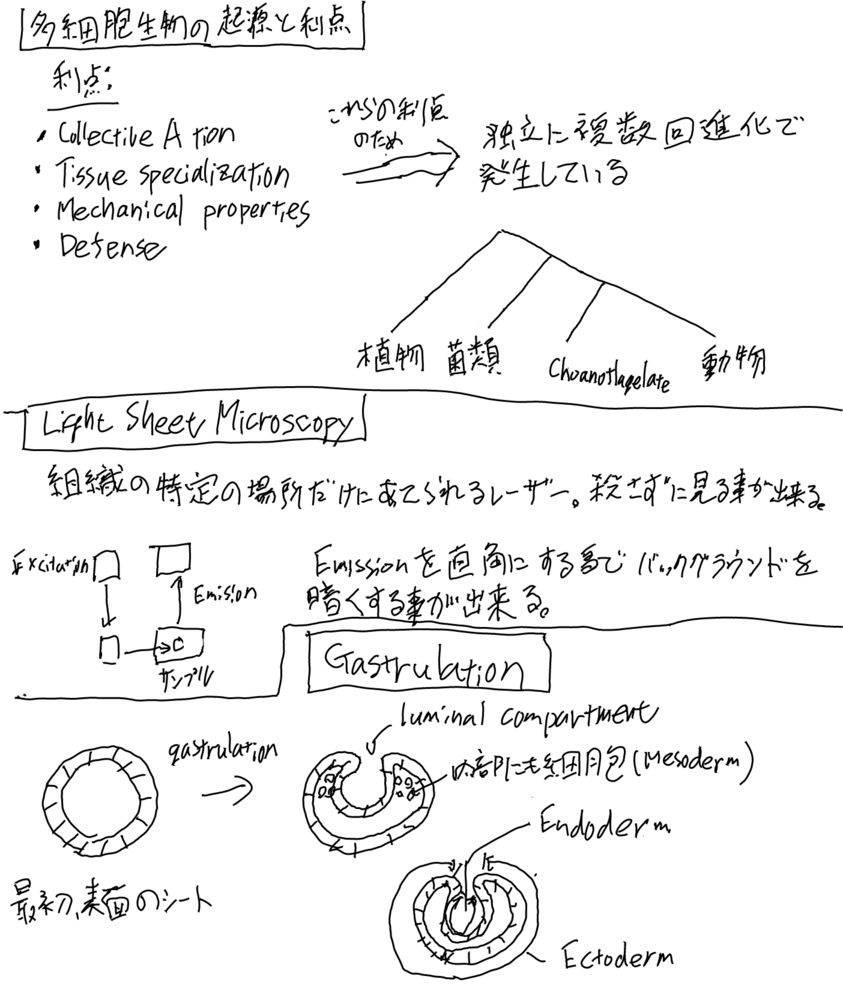 多細胞生物の起源と利点
利点:
• Collective Action
• Tissue specialization
• Mechanical properties
• Defense
これらの利点
のため
独立に複数回進化で
発生している
植物 菌類 Choanoflagelate 動物
Light Sheet Microscopy
組織の特定の場所だけにあてられるレーザー。殺さずに見る事が出来る。
Excitation
Emision
サンプル
Emissionを直角にする事でバックグラウンドを
暗くする事が出来る。
Gastrulation
gastrulation
luminal compartment
内部にも細胞(Mesoderm)
Endoderm
最初、表面のシート
Ectoderm